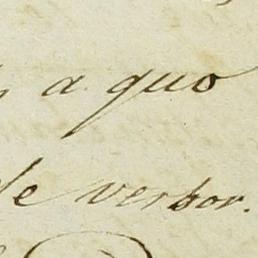 a quo
de verbor.